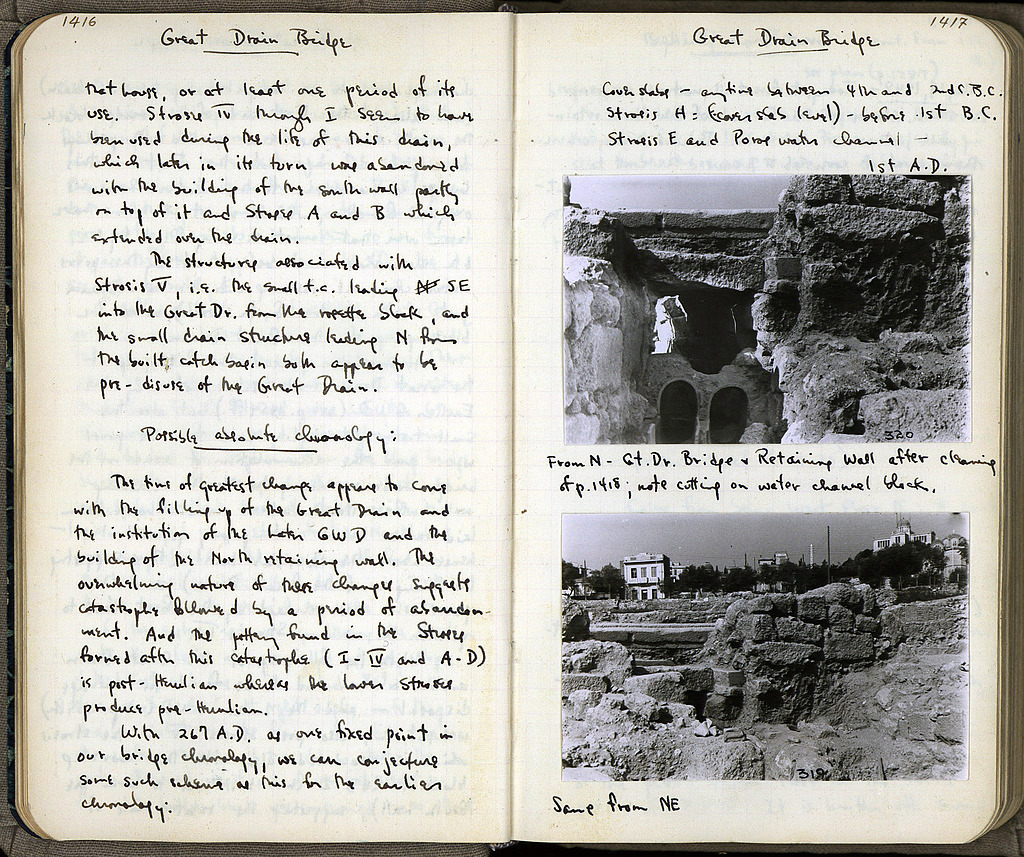 1416
Great Drain Bridge
that house, or at least one period of its
use. Stroses IV through I seem to have
been used during the life of this drain,
which later in its turn was abandoned
with the building of the south wall partly
on top of it and Stroses A and B which
extended over the drain.
The structures associated with
Strosis V, i.e. the small t.c. leading SE
into the Great Dr. from the block, and
the small drain structure leading N from
the built catch basin both appear to be
pre-disuse of the Great Drain.
Possible absolute chronology:
The time of greatest change appears to come
with the filling up of the Great Drain and
the institution of the later GWD and the
building of the North retaining wall. The
overwhelming nature of these changes suggests
catastrophe followed by a period of abandon-
ment. And the pottery found in the Stroses
formed after this catastrophe (I-IV and A-D)
is post-Herulian whereas the lower Stroses
produce pre-Herulian.
With 267 A.D. as one fixed point in
our bridge chronology, we can conjecture
some such scheme as this for the earlier
chronology:
1417
Great Drain Bridge
Coverslabs - anytime between 4th and 2nd C. B.C.
Strosis H = (coverslabs level) - before 1st B.C.
Strosis E and Poros water channel -
1st A.D.
320
From N - Gt. Dr. Bridge & Retaining Wall after cleaning
of p. 1418; note cutting on water channel block.
319
Same from NE